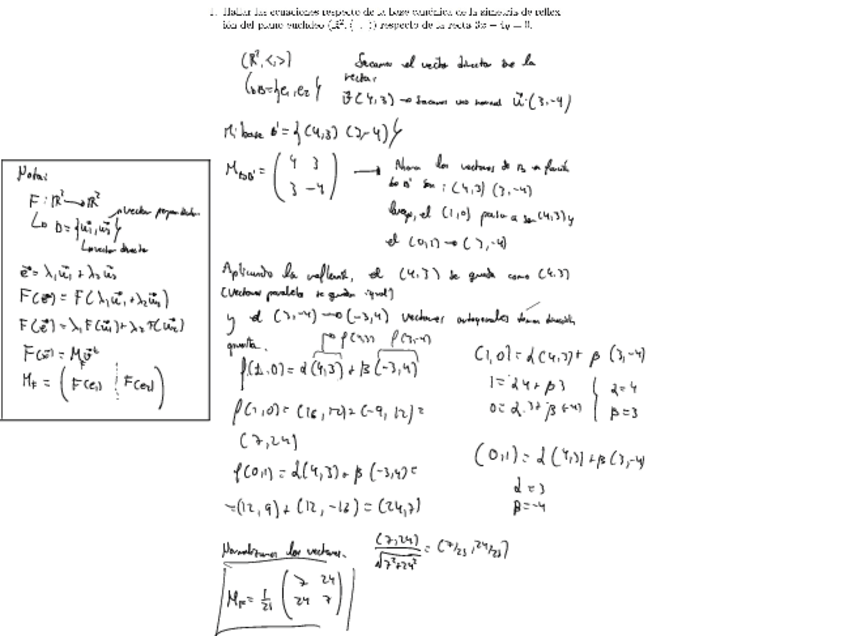 1. Hallar las ecuaciones respecto de la base canónica de la simetría de reflex
ión del plano euclídeo (R², ⟨ , ⟩) respecto de la recta 3x − 4y = 0.
(R²,<,>)
B={e₁,e₂}
Sacamos el vector director de la
recta:
v⃗(4,3) → Sacamos uno normal u⃗·(3,-4)
Mi base B'={(4,3) (3,-4)}
M_BB' = (4 3
3 -4) →
Ahora los vectores de B en función
de B' son: (4,3) (3,-4)
luego, el (1,0) pasa a ser (4,3) y
el (0,1) → (3,-4)
Nota:
F: R² → R²
B={u⃗₁,u⃗₂}
vector perpendicular
vector director
e⃗=λ₁u⃗₁+λ₂u⃗₂
F(e⃗)=F(λ₁u⃗₁+λ₂u⃗₂)
F(e⃗)=λ₁F(u⃗₁)+λ₂F(u⃗₂)
M_F = (F(e₁) F(e₂))
Aplicando la el (4,3) se queda como (4,3)
(Vectores paralelos se quedan igual)
y el (3,-4) → (-3,4) vectores ortogonales dirección
f(4,3) f(3,-4)
f(1,0)=α(4,3)+β(-3,4)
f(1,0)=(16,12)+(-9,12)=
(7,24)
f(0,1)=α(4,3)+β(-3,4)=
=(12,9)+(12,-16)=(24,7)
(1,0)=α(4,3)+β(3,-4)
1=α4+β3
0=α·3+β(-4)
α=4
β=3
(0,1)=α(4,3)+β(3,-4)
α=3
β=-4
Normalizamos los vectores.
(7,24)
√7²+24²
=(7/25,24/25)
M_F=1/25 (7 24
24 7)